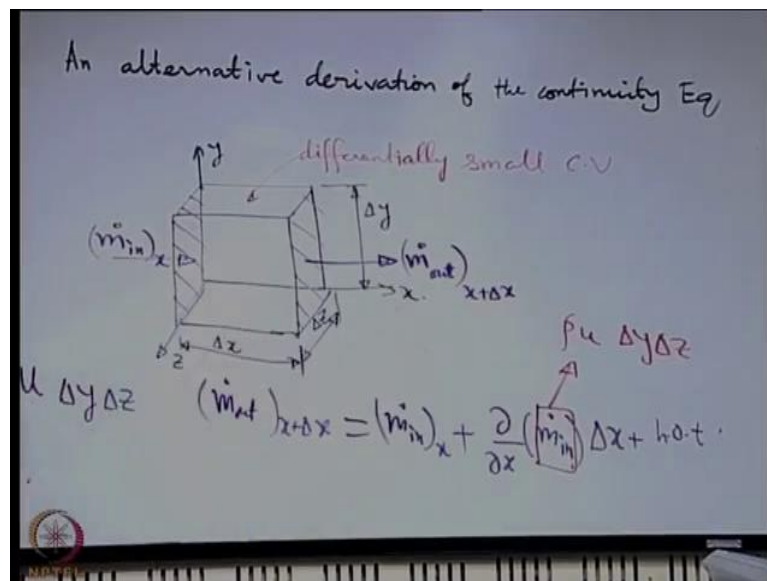 An alternative derivation of the continuity Eq
y
differentially small C.V
Δy
(ṁin)x
(ṁout)x+Δx
x
Δx
z
ρu ΔyΔz
u ΔyΔz
(ṁout)x+Δx = (ṁin)x + ∂/∂x (ṁin) Δx + h.o.t.
NPTEL